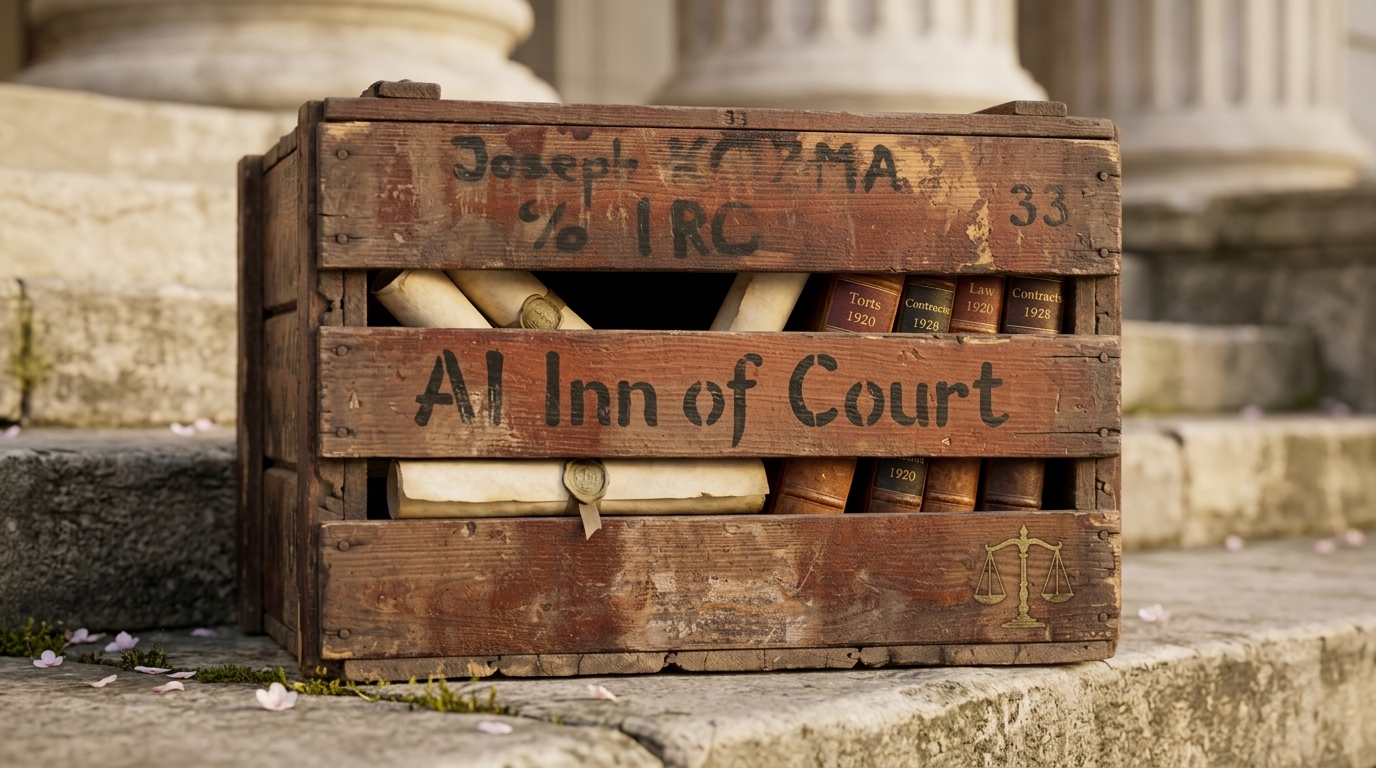 33
Joseph KOZMA
% IRC
33
Torts
1920
Contrects
1928
Law
1920
Contracts
1928
AI Inn of Court
1920